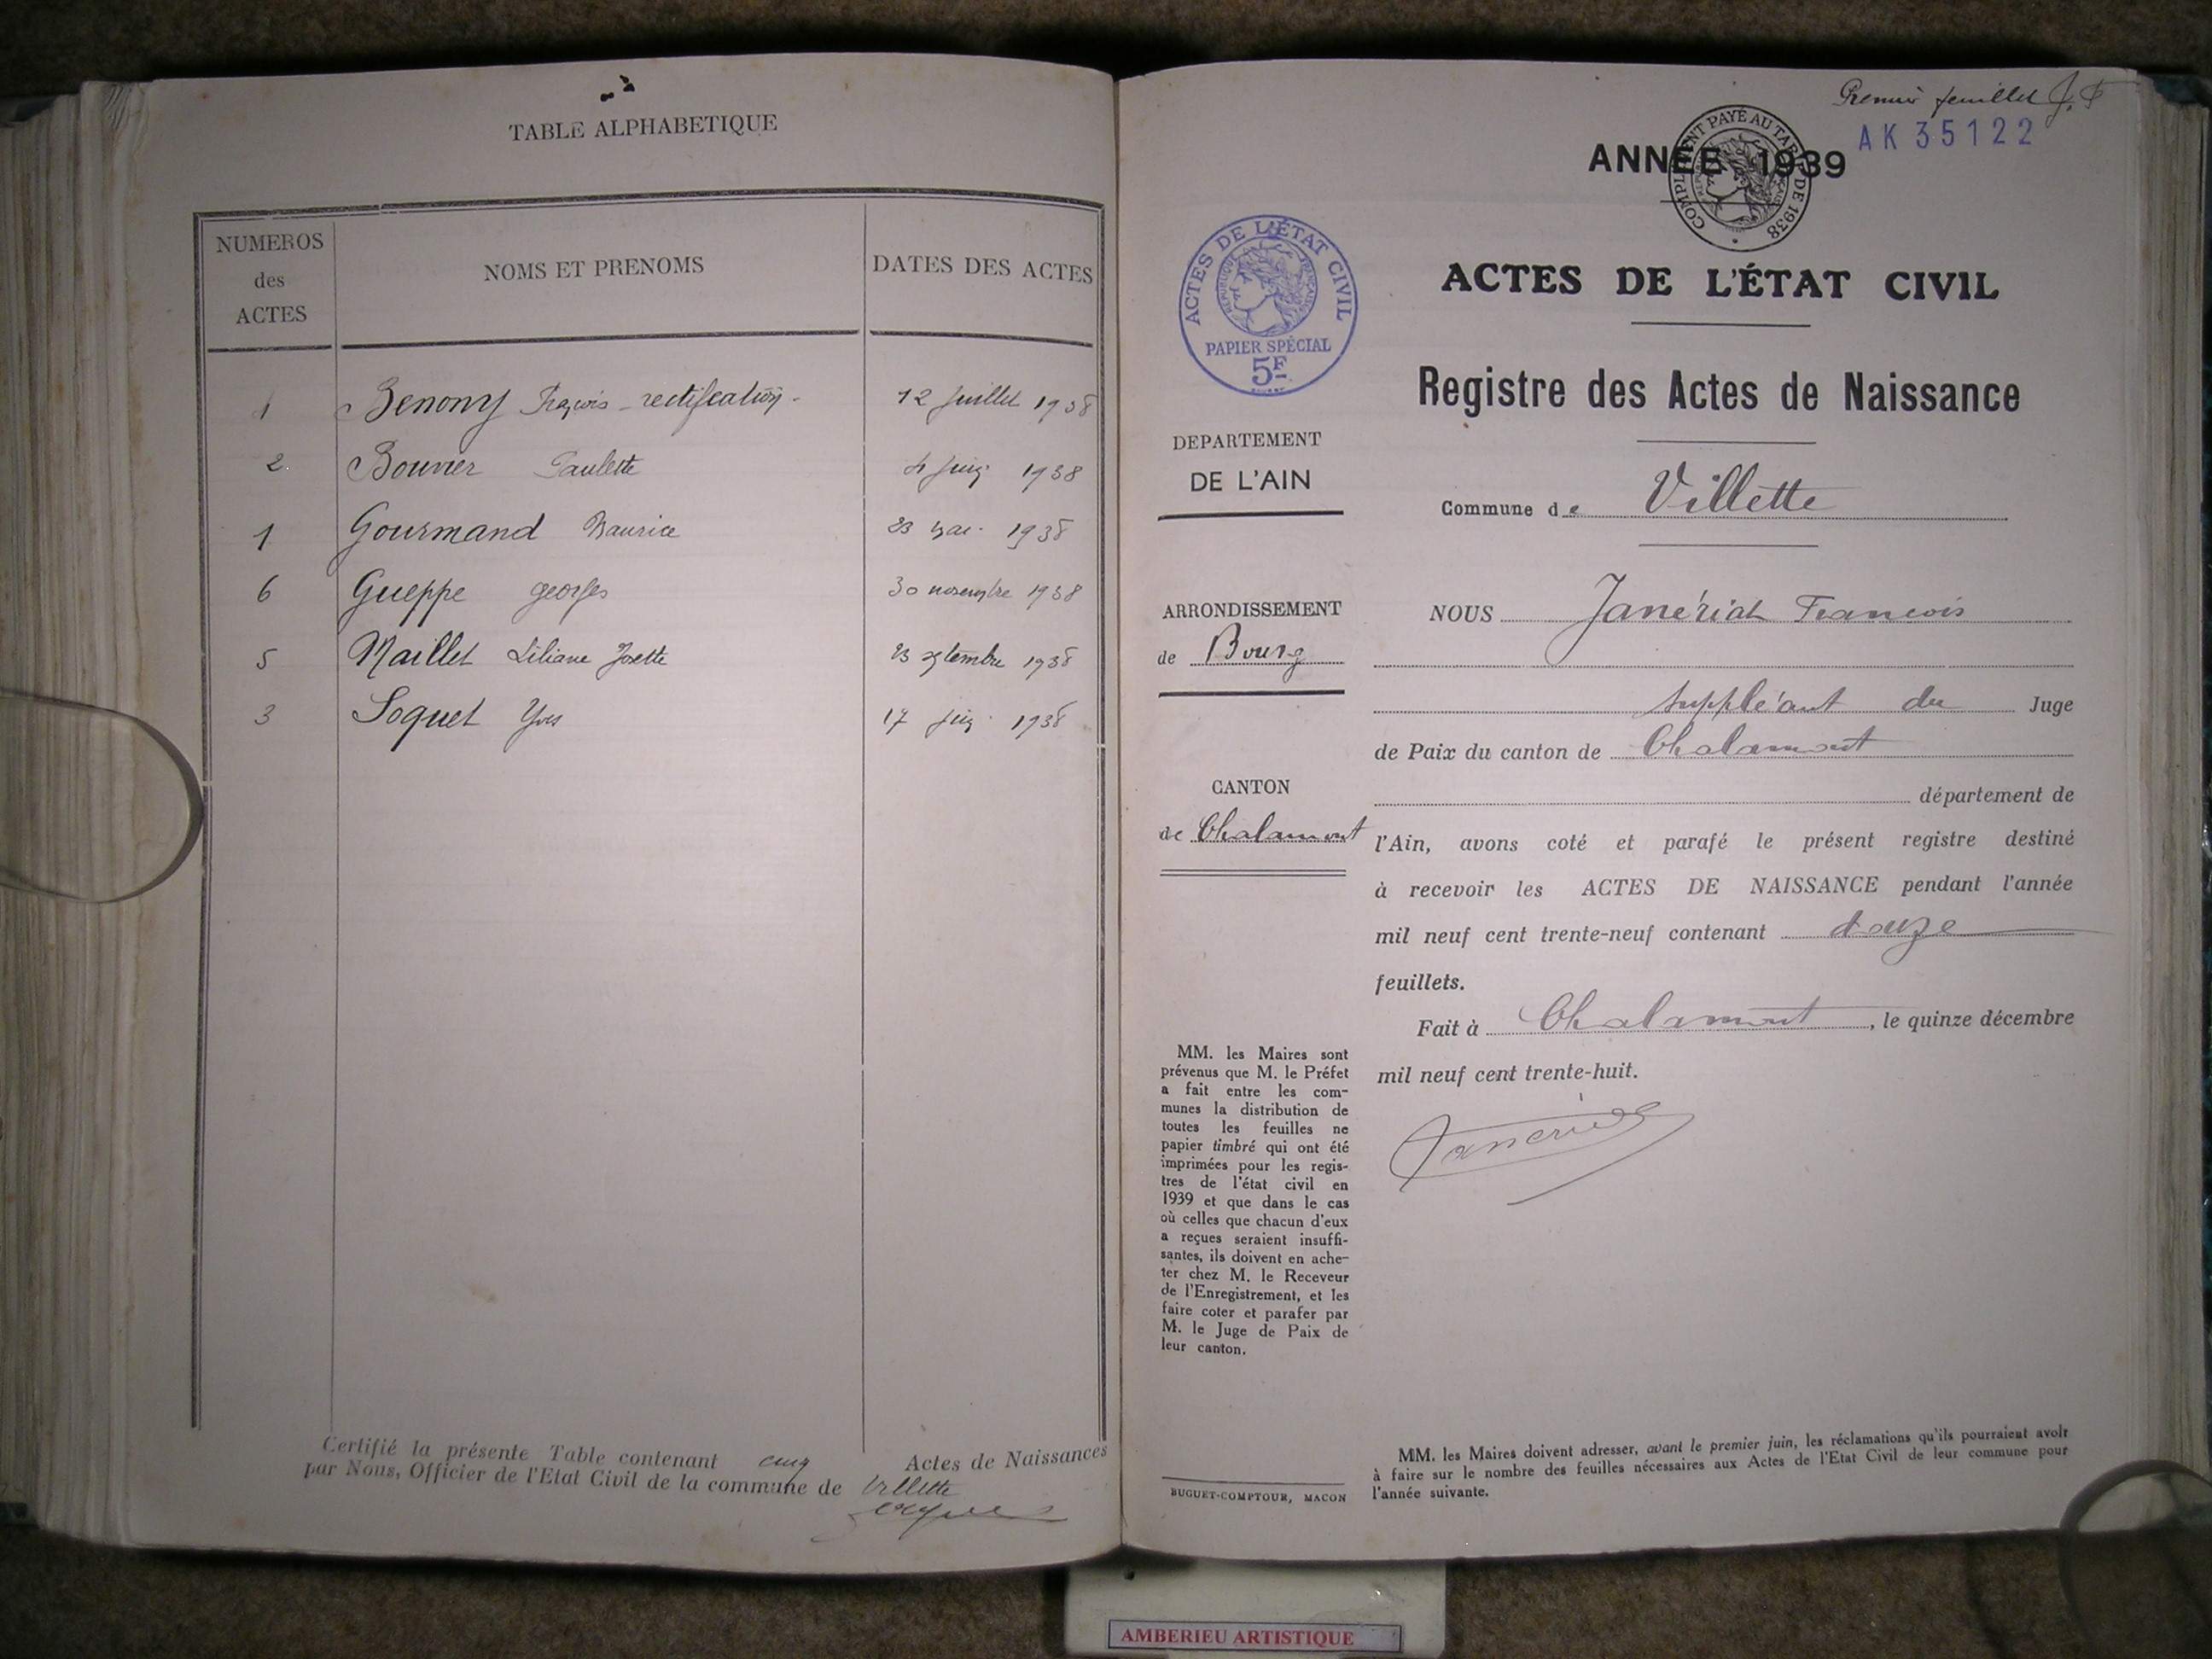 TABLE ALPHABETIQUE
NUMEROS des ACTES
NOMS ET PRENOMS
DATES DES ACTES
1 Benony François rectification 12 Juillet 1938
2 Bouvier Paulette 4 Juin 1938
1 Gourmand Maurice 23 mai 1938
6 Gueppe georges 30 novembre 1938
5 Maillet Liliane Josette 23 septembre 1938
3 Soquet Yves 17 juin 1938
Certifié la présente Table contenant cinq Actes de Naissances
par Nous, Officier de l'Etat Civil de la commune de Villette
Premier feuillet
AK 35122
ANNÉE 1939
COMPLÉMENT PAYÉ AU TARIF DE 1938
ACTES DE L'ÉTAT CIVIL
RÉPUBLIQUE FRANÇAISE
PAPIER SPÉCIAL
5F
ACTES DE L'ÉTAT CIVIL
Registre des Actes de Naissance
DEPARTEMENT
DE L'AIN
Commune de Villette
ARRONDISSEMENT
de Bourg
CANTON
de Chalamont
NOUS Janériat François
suppléant du Juge
de Paix du canton de Chalamont
département de
l'Ain, avons coté et parafé le présent registre destiné
à recevoir les ACTES DE NAISSANCE pendant l'année
mil neuf cent trente-neuf contenant douze
feuillets.
Fait à Chalamont, le quinze décembre
mil neuf cent trente-huit.
MM. les Maires sont
prévenus que M. le Préfet
a fait entre les com-
munes la distribution de
toutes les feuilles ne
papier timbré qui ont été
imprimées pour les regis-
tres de l'état civil en
1939 et que dans le cas
où celles que chacun d'eux
a reçues seraient insuffi-
santes, ils doivent en ache-
ter chez M. le Receveur
de l'Enregistrement, et les
faire coter et parafer par
M. le Juge de Paix de
leur canton.
BUGUET-COMPTOUR, MACON
MM. les Maires doivent adresser, avant le premier juin, les réclamations qu'ils pourraient avoir
à faire sur le nombre des feuilles nécessaires aux Actes de l'Etat Civil de leur commune pour
l'année suivante.
AMBERIEU ARTISTIQUE